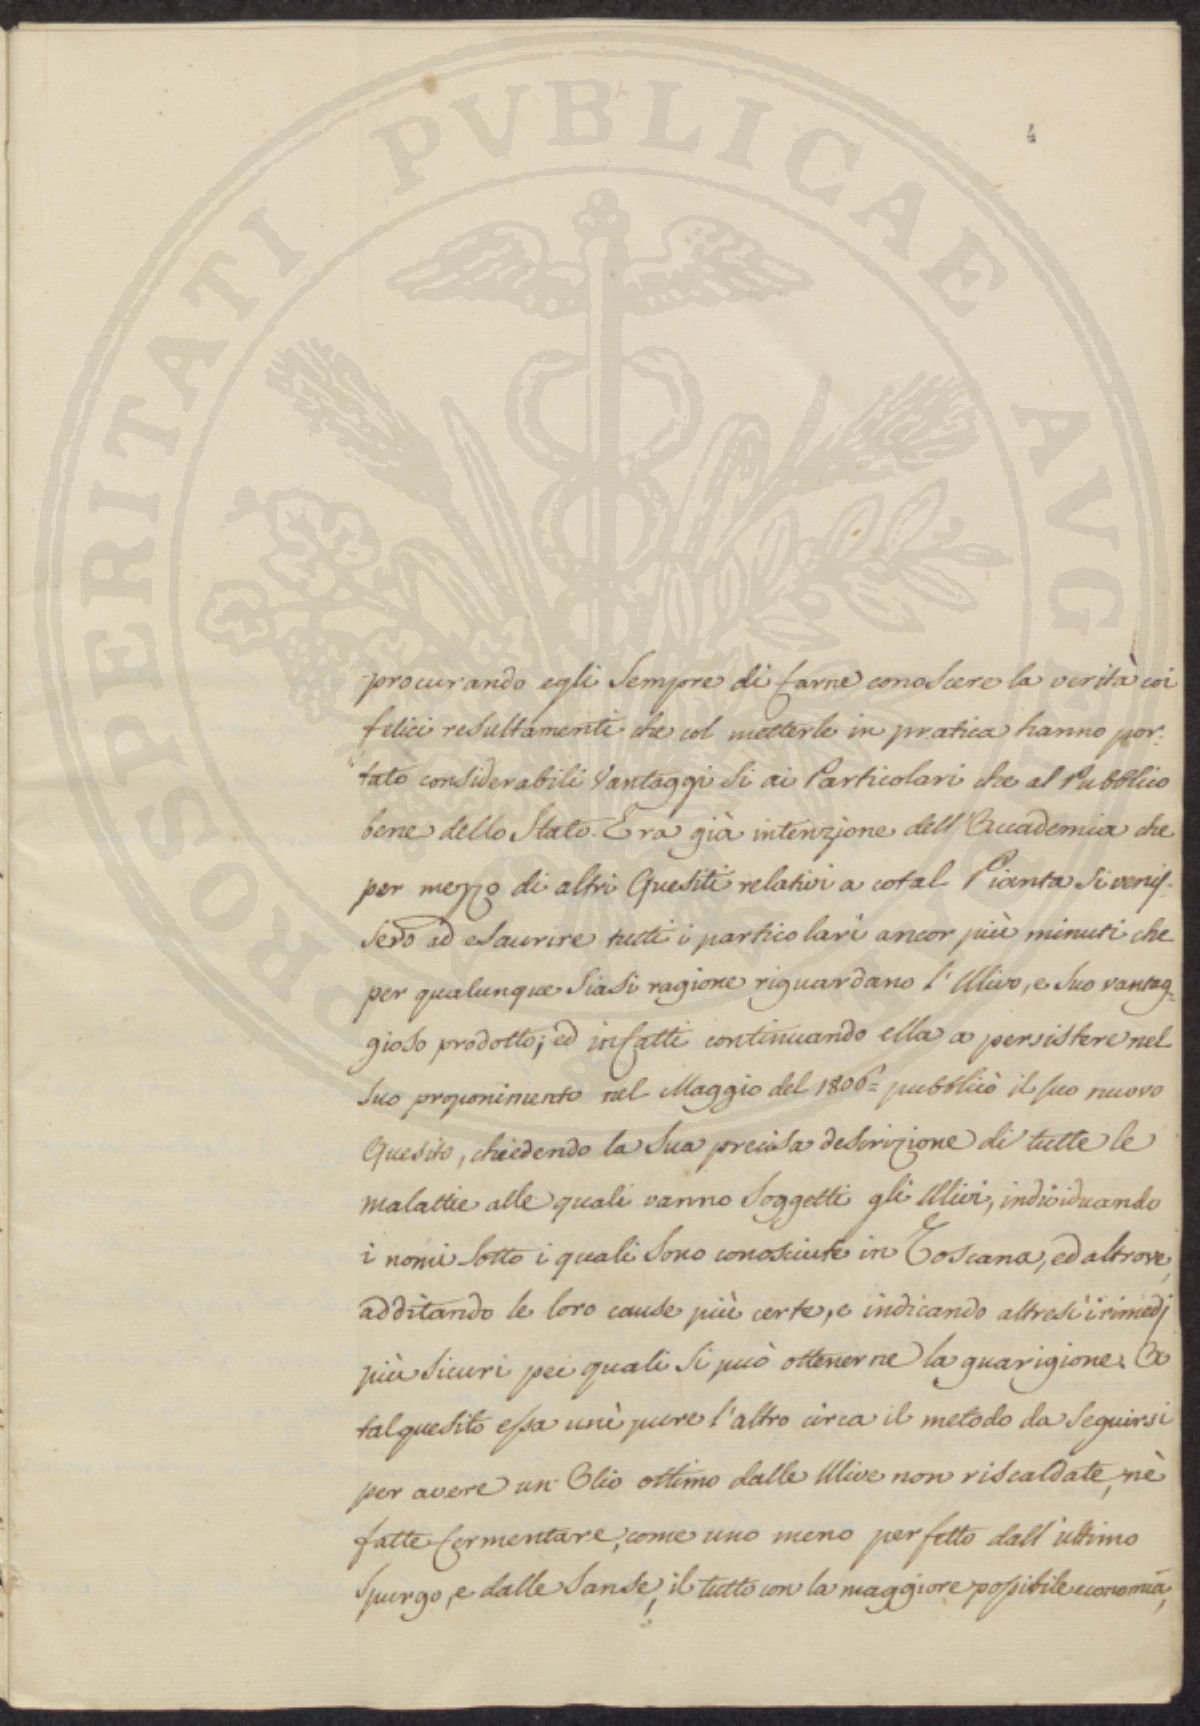 PROSPERITATI PVBLICAE AVGENDAE
4
procurando egli sempre di farne conoscere la verità coi
felici resultamenti che col metterle in pratica hanno por=
tato considerabili Vantaggi si ai Particolari che al Pubblico
bene dello Stato. Era già intenzione dell'Accademia che
per mezzo di altri Quesiti relativi a cotal Pianta si venis=
sero ad esaurire tutti i particolari ancor più minuti che
per qualunque siasi ragione riguardano l'Ulivo, e suo vantag=
gioso prodotto; ed infatti continuando ella a persistere nel
suo proponimento nel Maggio del 1806= pubblicò il suo nuovo
Quesito, chiedendo la sua precisa descrizione di tutte le
malattie alle quali vanno soggetti gli Ulivi, individuando
i nomi sotto i quali sono conosciute in Toscana, ed altrove,
additando le loro cause più certe, e indicando altresì i rimedj
più sicuri pei quali si può ottenerne la guarigione. A
tal quesito essa unì pure l'altro circa il metodo da seguirsi
per avere un Olio ottimo dalle Ulive non riscaldate, nè
fatte fermentare, come uno meno perfetto dall'ultimo
spurgo, e dalle Sanse, il tutto con la maggiore possibile economia,